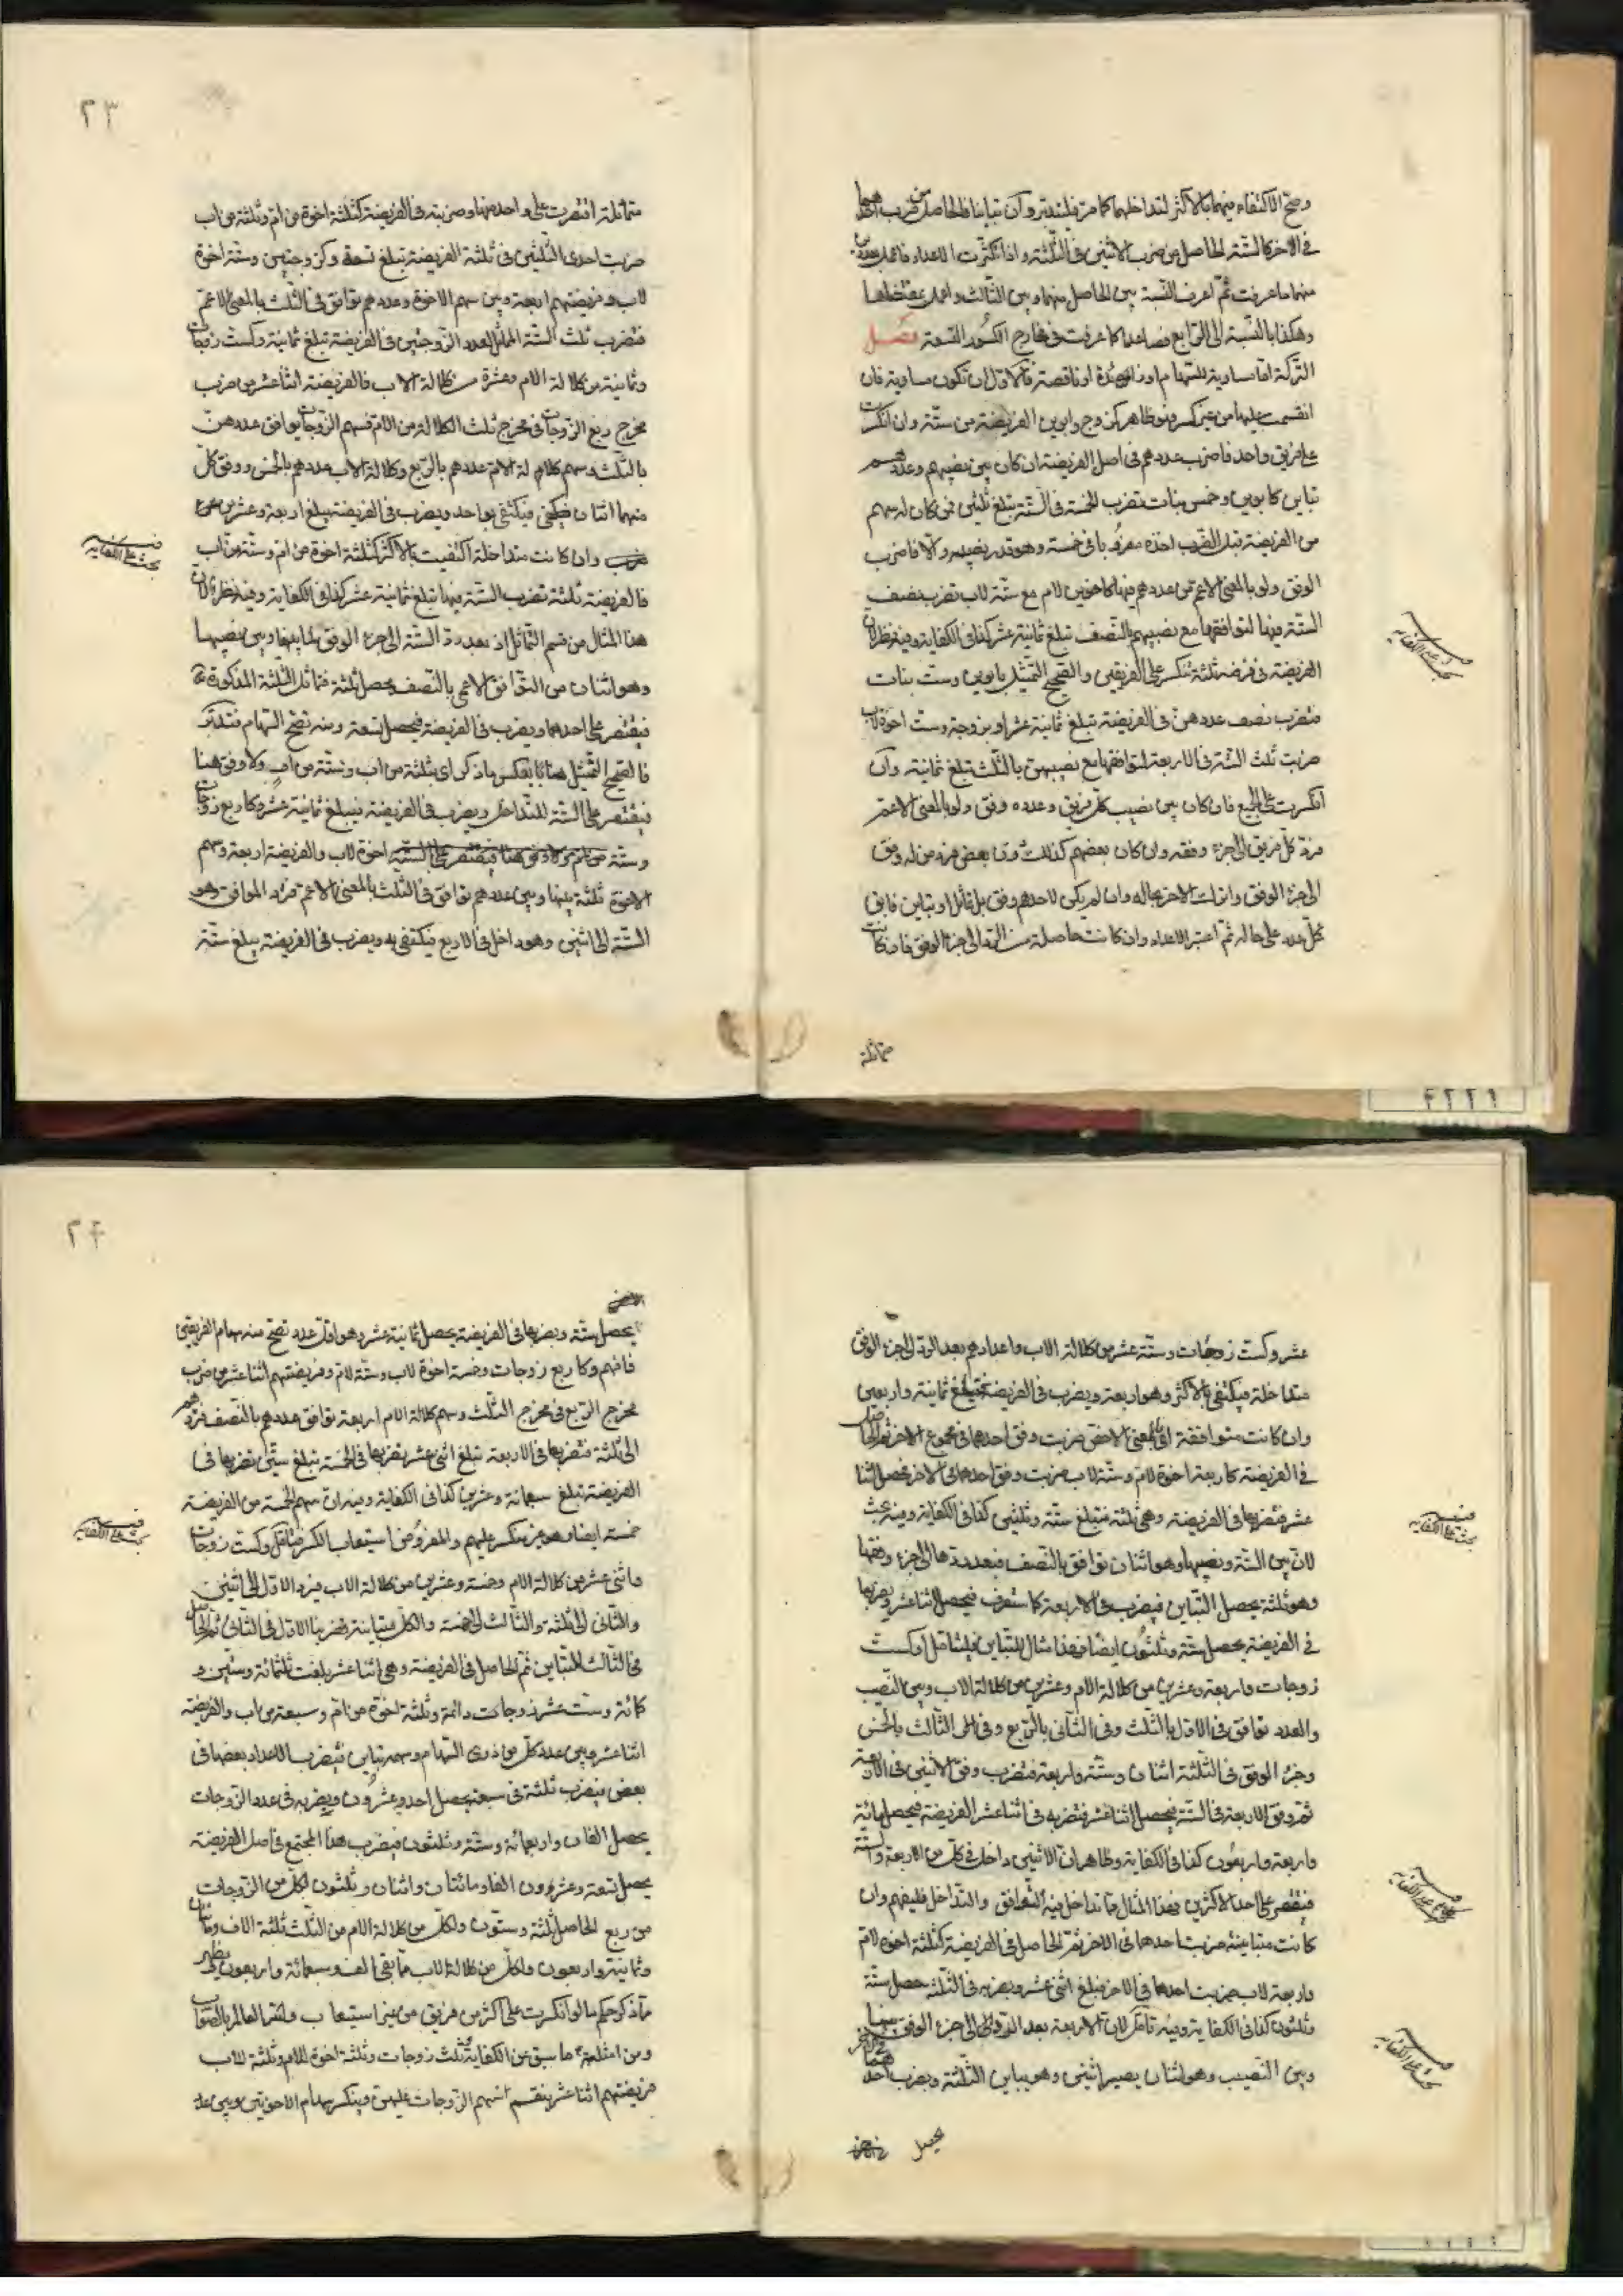 وصحّ الاكتفاء فيهما بالاكثر لتداخلهما كما مرّ فليتدبر وان تباينا فالحاصل من ضرب احدهما
في الاخر كالستة الحاصل من ضرب الاثنين في الثلثة واذا تكثرت الاعداد فاعمل بعددين
منهما ما عرفت ثم اعرف النسبة بين الحاصل منهما وبين الثالث واعمل بمقتضاها
وهكذا بالنسبة الى الرابع فصاعدا كما عرفت في مخارج الكسور التسعة فصل
التركة اما مساوية للسهام او زائدة او ناقصة فالاول ان تكون مساوية فان
انقسمت عليها من غير كسر فظاهر كزوج وابوين الفريضة من ستة وان انكسرت
على فريق واحد فاضرب عددهم في اصل الفريضة ان كان بين نصيبهم وعددهم
تباين كابوين وخمس بنات تضرب الخمسة في الستة تبلغ ثلثين فمن كان له سهم
من الفريضة قبل الضرب اخذه مضروبا في خمسة وهو قدر نصيبه والا فاضرب
الوفق ولو بالمعنى الاعم من عددهم فيها كاخوين لام مع ستة لاب تضرب نصف
الستة فيها لتوافقها مع نصيبهم بالنصف تبلغ ثمانية عشر كذا في الكفاية وفيه نظر لان
الفريضة في فرضه ثلثة تنكسر على الفريقين والصحيح التمثيل بابوين وست بنات
فتضرب نصف عددهن في الفريضة تبلغ ثمانية عشر او بزوجة وست اخوة لاب
ضربت ثلث الستة في الاربعة لتوافقها مع نصيبهن بالثلث تبلغ ثمانية وان
انكسرت على الجميع فان كان بين نصيب كل فريق وعدده وفق ولو بالمعنى الاعم
فرد كل فريق الى جزء وفقه وان كان بعضهم كذلك دون بعض فرد من له وفق
الى جزء الوفق واترك الاخر بحاله وان لم يكن لاحدهم وفق بل تماثل او تباين فابق
كل عدد على حاله ثم اعتبر الاعداد وان كانت حاصلة من الرد الى جزء الوفق فان كانت
متماثلة
٢٣
متماثلة اقتصرت على واحد منها وضربته في الفريضة كثلثة اخوة من ام وثلثة من اب
ضربت احدى الثلثين في ثلثة الفريضة تبلغ تسعة وكزوجتين وستة اخوة
لاب وفريضتهم اربعة وبين سهم الاخوة وعددهم توافق في الثلث بالمعنى الاعم
فتضرب ثلث الستة المماثل لعدد الزوجتين في الفريضة تبلغ ثمانية وكست زوجات
وثمانية من كلالة الام وعشرة من كلالة الاب فالفريضة اثنا عشر من ضرب
مخرج ربع الزوجات في مخرج ثلث الكلالة من الام فسهم الزوجات يوافق عددهن
بالثلث وسهم كلالة الام عددهم بالربع وكلالة الاب عددهم بالخمس ووفق كل
منهما اثنان فيكتفى بواحد ويضرب في الفريضة يبلغ اربعة وعشرين
وان كانت متداخلة اكتفيت بالاكثر كثلثة اخوة من ام وستة من اب
فالفريضة ثلثة تضرب الستة فيها تبلغ ثمانية عشر كذا في الكفاية وفيه نظر لان
هذا المثال من قسم التماثل اذ بعد رد الستة الى جزء الوفق لما بينها وبين نصيبها
وهو اثنان من التوافق الاعم بالنصف يحصل ثلثة فتماثل الثلثة المذكورة
فيقتصر على احدهما ويضرب في الفريضة فيحصل تسعة ومنه تصح السهام فتدبر
فالصحيح التمثيل هنا بعكس ما ذكر اي بثلثة من اب وستة من ام ولا وفق هنا
فيقتصر على الستة للتداخل ويضرب في الفريضة فيبلغ ثمانية عشر وكاربع زوجات
وستة اخوة لاب والفريضة اربعة وسهم
الاخوة ثلثة بينها وبين عددهم توافق في الثلث بالمعنى الاعم فرد الموافق وهو
الستة الى اثنين وهو داخل في الاربع فيكتفى به ويضرب في الفريضة يبلغ ستة
عشر وكست زوجات وستة عشر من كلالة الاب واعدادهم بعد الرد الى جزء الوفق
متداخلة فيكتفى بالاكثر وهو اربعة ويضرب في الفريضة فتبلغ ثمانية واربعين
وان كانت متوافقة بالمعنى الاخص ضربت وفق احدهما في مجموع الاخر ثم الحاصل
في الفريضة كاربعة اخوة لام وستة لاب ضربت وفق احدهما في الاخر فحصل اثنا
عشر فتضربها في الفريضة وهي ثلثة فتبلغ ستة وثلثين كذا في الكفاية وفيه بحث
لان بين الستة ونصيبها وهو اثنان توافق بالنصف فبعد ردها الى جزء وفقها
وهو ثلثة يحصل التباين فيضرب في الاربعة كما ستعرف فيحصل اثنا عشر ويضربها
في الفريضة يحصل ستة وثلثون ايضا فهذا مثال للتباين فليتامل وكست
زوجات واربعة وعشرين من كلالة الام وعشرين من كلالة الاب وبين النصيب
والعدد توافق في الاول بالثلث وفي الثاني بالربع وفي الثالث بالخمس
وجزء الوفق في الثلثة اثنان وستة واربعة فتضرب وفق الاثنين في الاربعة
ثم وفق الاربعة في الستة فيحصل اثنا عشر فتضربه في اثنا عشر الفريضة فيحصل مائة
واربعة واربعون كذا في الكفاية وظاهر ان الاثنين داخل في كل من الاربعة والستة
فيقتصر على احد الاكثرين فهذا المثال ما تداخل فيه التوافق والتداخل فليفهم وان
كانت متباينة ضربت احدهما في الاخر ثم الحاصل في الفريضة كثلثة اخوة لام
واربعة لاب ضربت احدهما في الاخر فبلغ اثني عشر ويضربه في الثلثة حصل ستة
وثلثون كذا في الكفاية وفيه تامل لان الاربعة بعد الرد الى جزء الوفق بينها
وبين النصيب وهو اثنان يصير اثنين وهو يباين الثلثة وبضرب احدهما في الاخر
يحصل
٢٤
يحصل ستة وبضربها في الفريضة يحصل ثمانية عشر وهو اقل عدد تصح منه سهام الفريقين
فافهم وكاربع زوجات وخمسة اخوة لاب وستة لام وفريضتهم اثنا عشر من ضرب
مخرج الربع في مخرج الثلث وسهم كلالة الام اربعة توافق عددهم بالنصف فردهم
الى ثلثة فتضربها في الاربعة تبلغ اثني عشر تضربها في الخمسة تبلغ ستين تضربها في
الفريضة تبلغ سبعمائة وعشرين كذا في الكفاية وفيه ان سهم الخمسة من الفريضة
خمسة ايضا وهو غير منكسر عليهم والمفروض استيعاب الكسر فتامل وكست زوجات
واثني عشر من كلالة الام وخمسة وعشرين من كلالة الاب فيرد الاول الى اثنين
والثاني الى ثلثة والثالث الى خمسة والكل متباينة فضربنا الاول في الثاني ثم الحاصل
في الثالث للتباين ثم الحاصل في الفريضة وهي اثنا عشر بلغت ثلثمائة وستين و
كمائة وست عشر زوجات دائمة وثلثة اخوة من ام وسبعة من اب والفريضة
اثنا عشر وبين عدد كل من ذوي السهام وسهمه تباين فيضرب الاعداد بعضها في
بعض فيضرب ثلثة في سبعة يحصل احد وعشرون ويضربه في عدد الزوجات
يحصل الفان واربعمائة وستة وثلثون فيضرب هذا المجتمع في اصل الفريضة
يحصل تسعة وعشرون الفا ومائتان واثنان وثلثون لكل من الزوجات
من ربع الحاصل ثلثة وستون ولكل من كلالة الام من الثلث ثلثة الاف ومائتان
وثمانية واربعون ولكل من كلالة الاب ما بقي الف وسبعمائة واربعون يظهر
مما ذكر حكم ما لو انكسرت على اكثر من فريق من غير استيعاب والله العالم بالصواب
ومن امثلته ما سبق عن الكفاية ثلث زوجات وثلثة اخوة للام وثلثة للاب
فريضتهم اثنا عشر ينقسم اسهم الزوجات عليهن وينكسر سهام الاخوتين وبين عدد